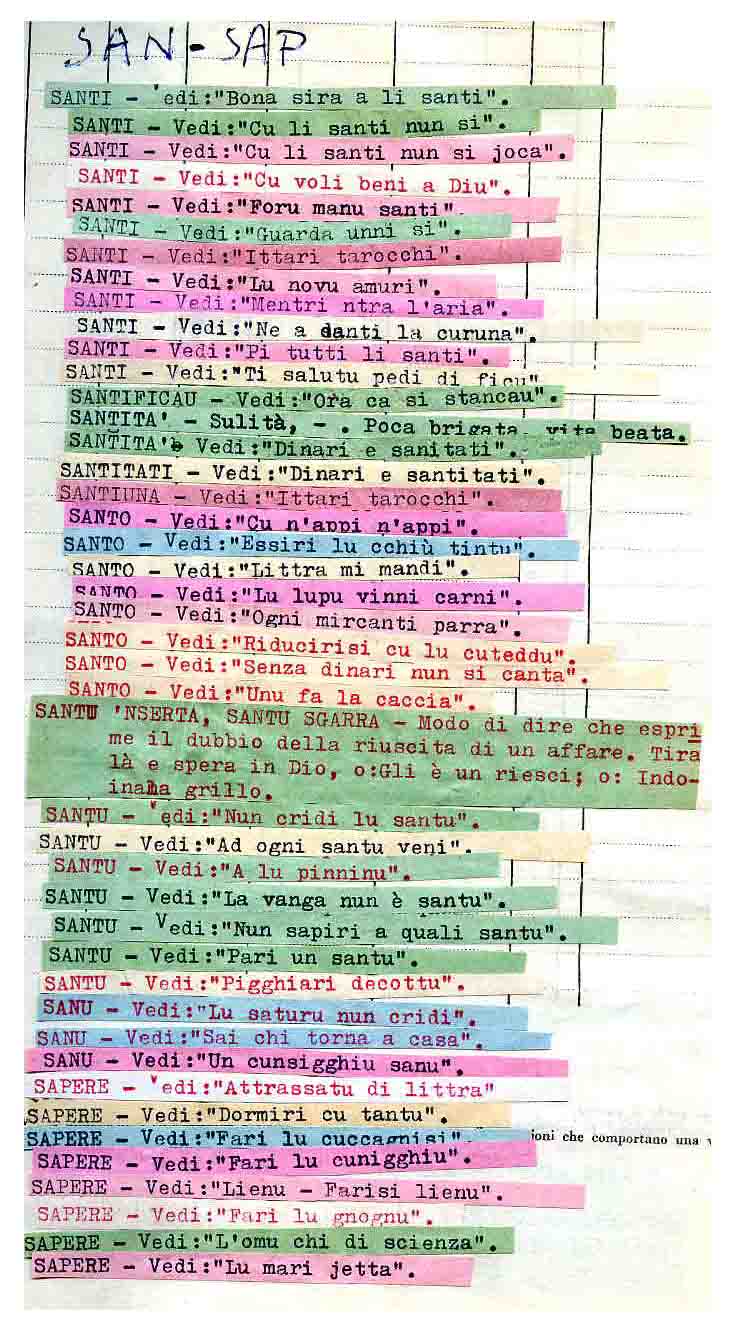 SAN-SAP
SANTI - Vedi:"Bona sira a li santi".
SANTI - Vedi:"Cu li santi nun si".
SANTI - Vedi:"Cu li santi nun si joca".
SANTI - Vedi:"Cu voli beni a Diu".
SANTI - Vedi:"Foru manu santi".
SANTI - Vedi:"Guarda unni si".
SANTI - Vedi:"Ittari tarocchi".
SANTI - Vedi:"Lu novu amuri".
SANTI - Vedi:"Mentri ntra l'aria".
SANTI - Vedi:"Ne a danti la curuna".
SANTI - Vedi:"Pi tutti li santi".
SANTI - Vedi:"Ti salutu pedi di ficu"
SANTIFICAU - Vedi:"Ora ca si stancau".
SANTITA' - Sulità, - . Poca brigata vita beata.
SANTITA' Vedi:"Dinari e sanitati".
SANTITATI - Vedi:"Dinari e santitati".
SANTIUNA - Vedi:"Ittari tarocchi".
SANTO - Vedi:"Cu n'appi n'appi".
SANTO - Vedi:"Essiri lu cchiù tintu".
SANTO - Vedi:"Littra mi mandi".
SANTO - Vedi:"Lu lupu vinni carni".
SANTO - Vedi:"Ogni mircanti parra".
SANTO - Vedi:"Riducirisi cu lu cuteddu".
SANTO - Vedi:"Senza dinari nun si canta".
SANTO - Vedi:"Unu fa la caccia".
SANTU 'NSERTA, SANTU SGARRA - Modo di dire che espri
me il dubbio della riuscita di un affare. Tira
là e spera in Dio, o:Gli è un riesci; o: Indo-
inala grillo.
SANTU - Vedi:"Nun cridi lu santu".
SANTU - Vedi:"Ad ogni santu veni".
SANTU - Vedi:"A lu pinninu".
SANTU - Vedi:"La vanga nun è santu".
SANTU - Vedi:"Nun sapiri a quali santu".
SANTU - Vedi:"Pari un santu".
SANTU - Vedi:"Pigghiari decottu".
SANU - Vedi:"Lu saturu nun cridi".
SANU - Vedi:"Sai chi torna a casa".
SANU - Vedi:"Un cunsigghiu sanu".
SAPERE - Vedi:"Attrassatu di littra"
SAPERE - Vedi:"Dormiri cu tantu".
SAPERE - Vedi:"Fari lu cuccagnisi". ioni che comportano una v
SAPERE - Vedi:"Fari lu cunigghiu".
SAPERE - Vedi:"Lienu - Farisi lienu".
SAPERE - Vedi:"Fari lu gnognu".
SAPERE - Vedi:"L'omu chi di scienza".
SAPERE - Vedi:"Lu mari jetta".